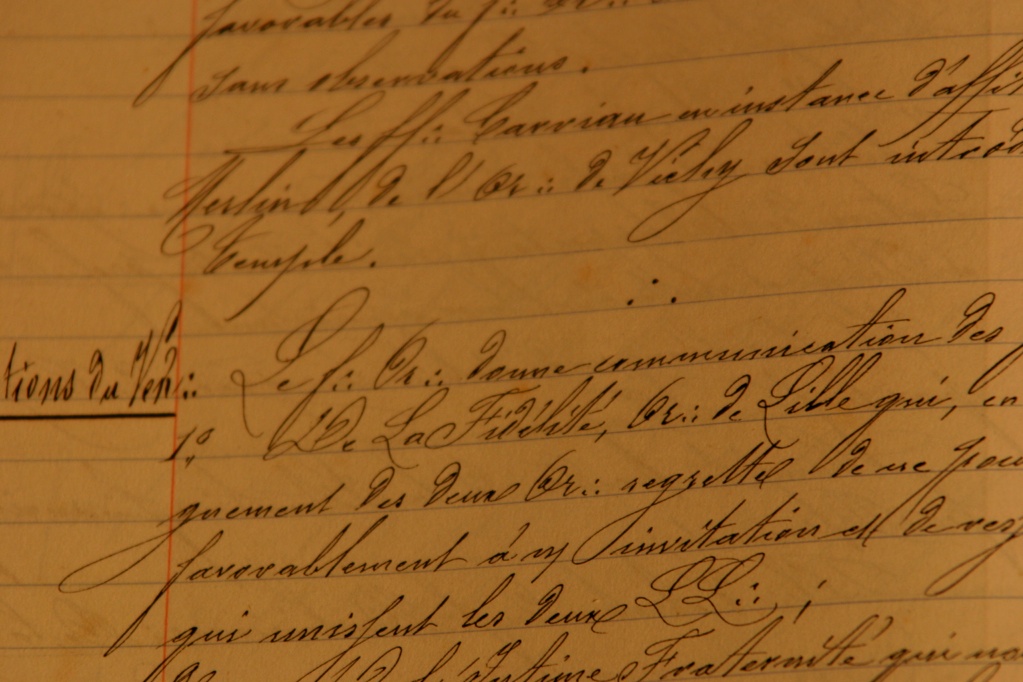 favorables du f∴ Or∴
sans observations.
Les ff∴ Carvian en instance d'affil
Merlin, de l'Or∴ de Vichy sont introd
Temple.
∴
tions du Vén∴
Le f∴ Or∴ donne communication des
1º De La Fidélité, Or∴ de Lille qui, en
gnement des deux Or∴ regrette de ne pou
favorablement à n/ invitation et de res
qui unissent les deux LL∴ ;
Intime Fraternité qui nous